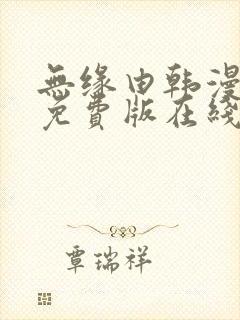 無缘由韩漫
免費版在綫
覃瑞祥